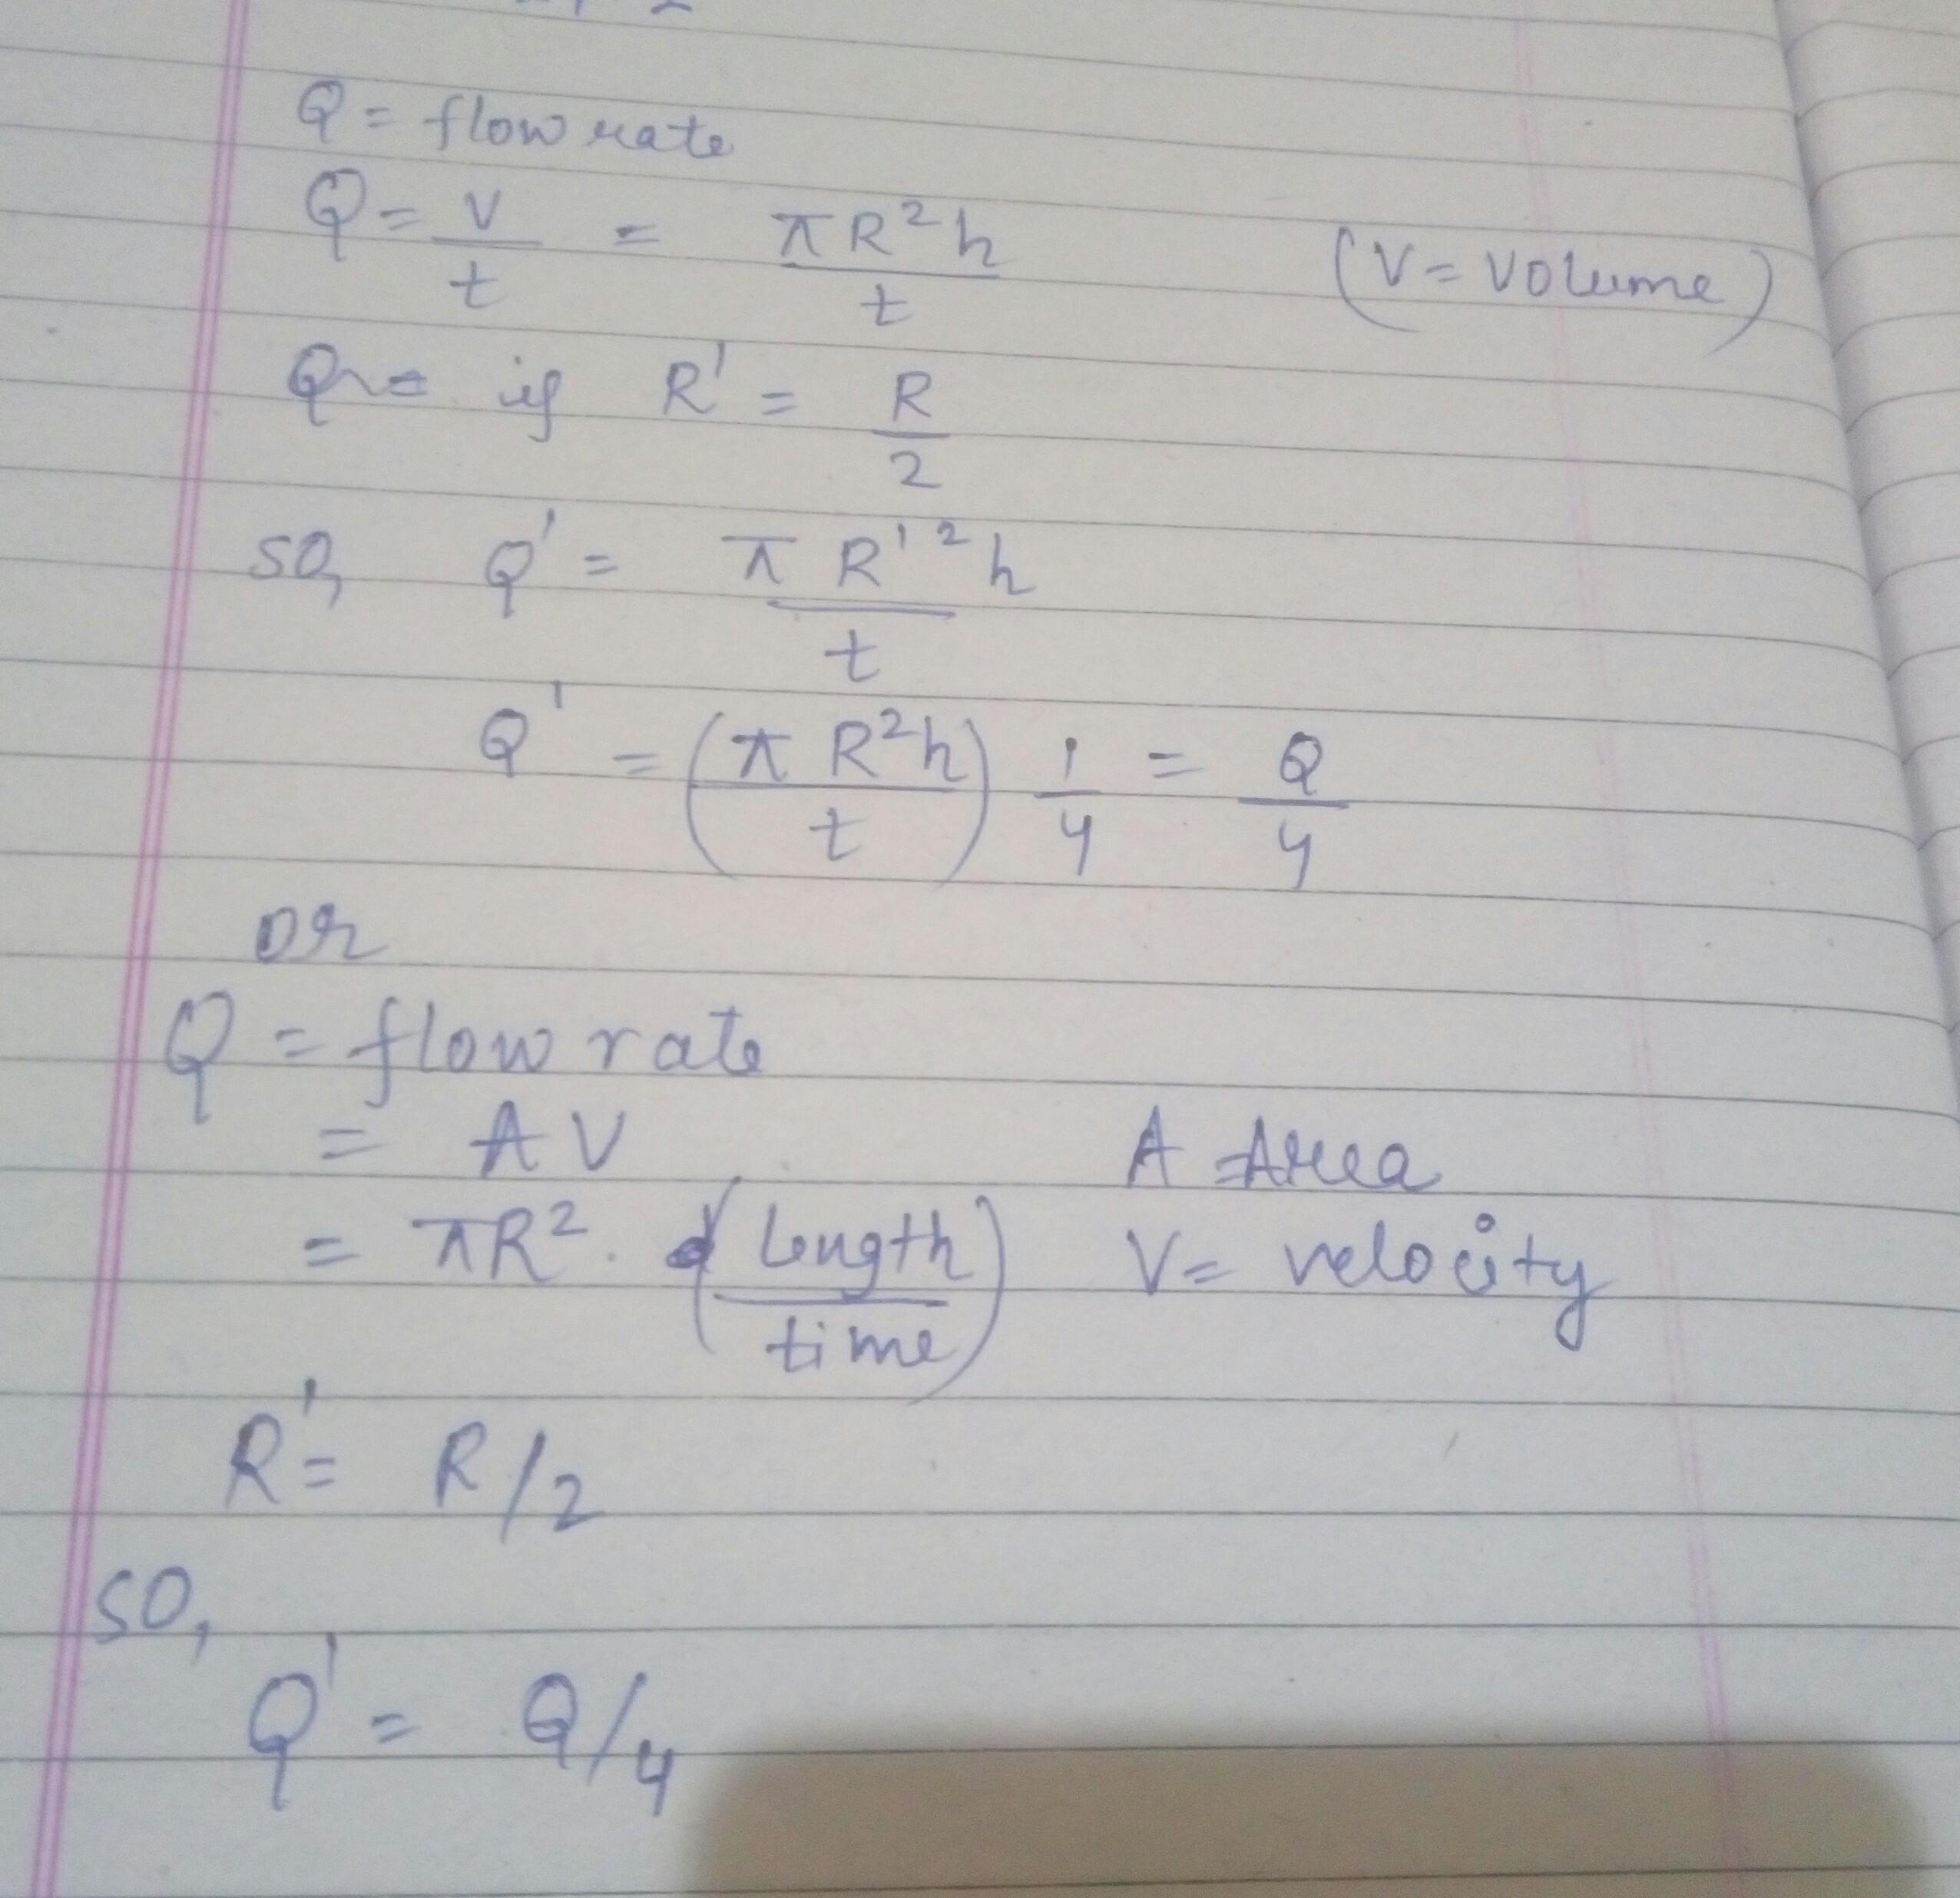 Q = flow rate
Q = V/t = πR²h/t (V = Volume)
if R' = R/2
so, Q' = πR'²h/t
Q' = (πR²h/t) 1/4 = Q/4
or
Q = flow rate
= AV A = Area
= πR² . (length/time) V = velocity
R' = R/2
so,
Q' = Q/4